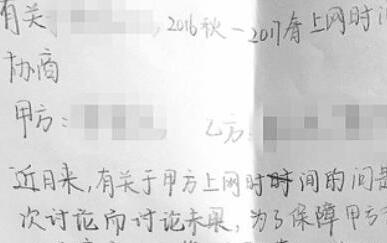 有关 ，2016秋—2017春上网时
协商
甲方： 乙方：
近日来，有关于甲方上网时时间的问
次讨论而讨论未果，为了保障甲方